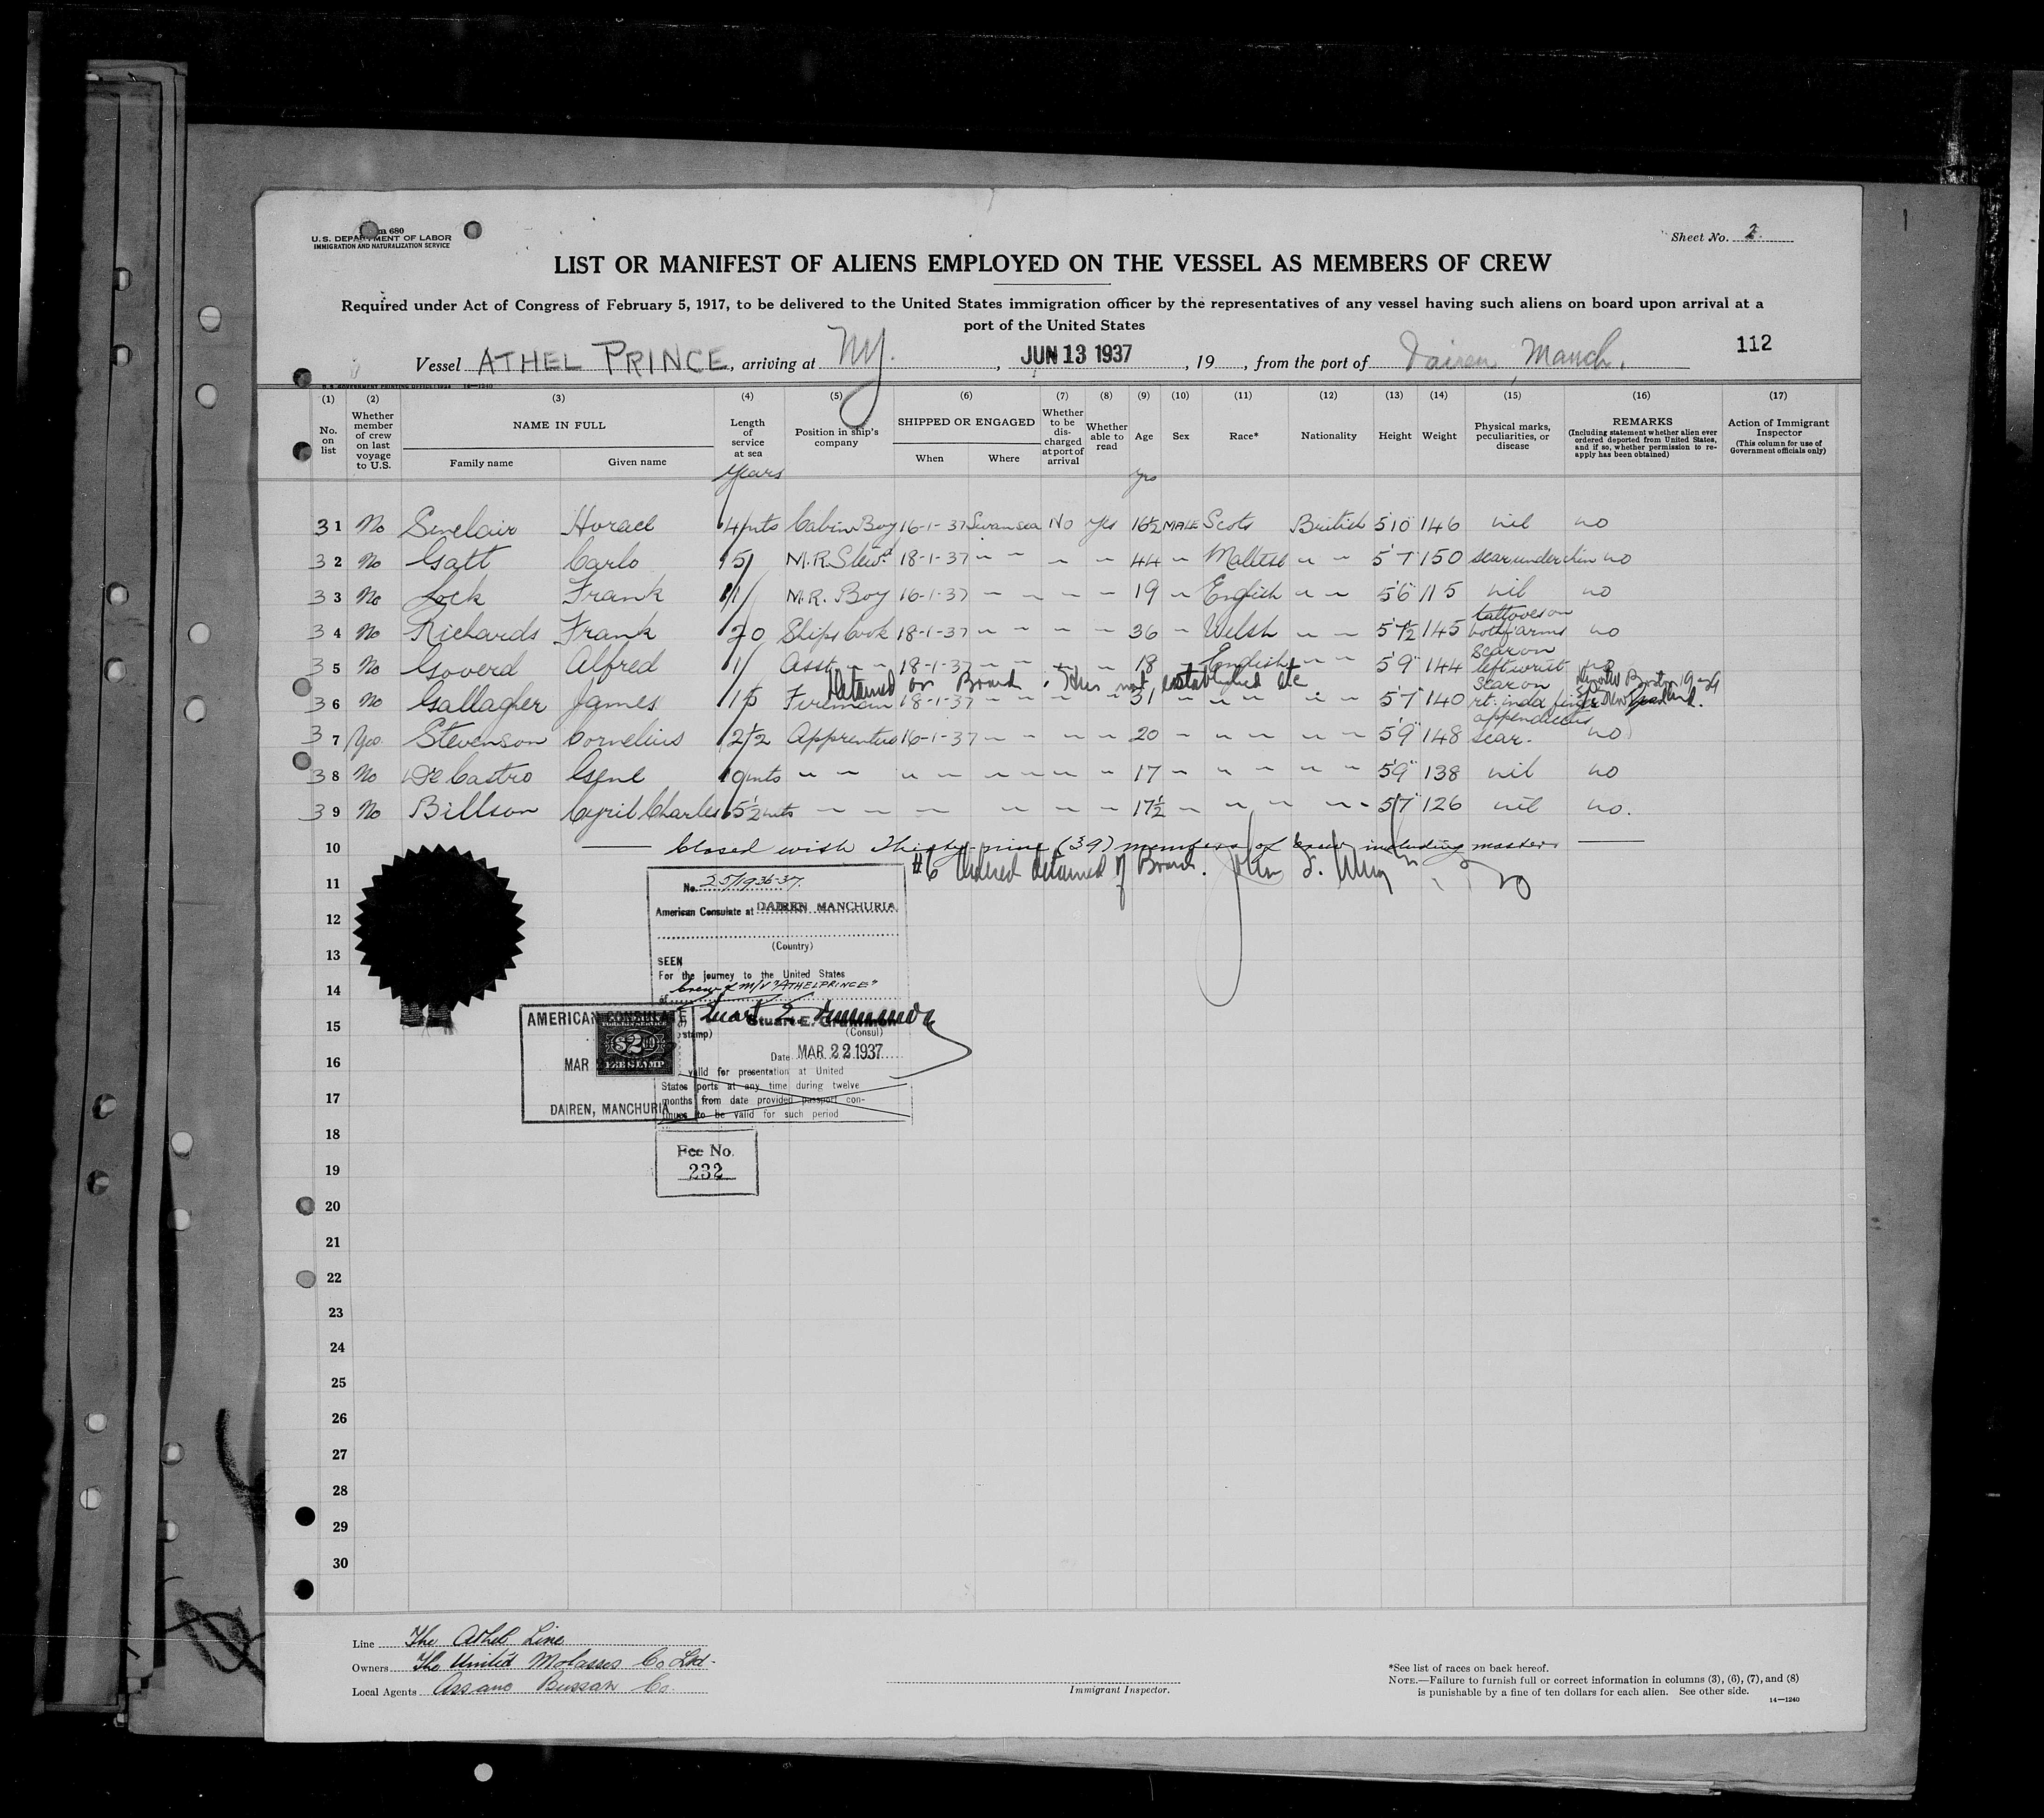 Form 680
U.S. DEPARTMENT OF LABOR
IMMIGRATION AND NATURALIZATION SERVICE
Sheet No. 2
LIST OR MANIFEST OF ALIENS EMPLOYED ON THE VESSEL AS MEMBERS OF CREW
Required under Act of Congress of February 5, 1917, to be delivered to the United States immigration officer by the representatives of any vessel having such aliens on board upon arrival at a
port of the United States
112
Vessel ATHEL PRINCE, arriving at NY., JUN 13 1937, 19 , from the port of Dairen, Manch.
(1) (2) (3) (4) (5) (6) (7) (8) (9) (10) (11) (12) (13) (14) (15) (16) (17)
No. on list
Whether member of crew on last voyage to U.S.
NAME IN FULL
Family name Given name
Length of service at sea
Years
Position in ship's company
SHIPPED OR ENGAGED
When Where
Whether to be discharged at port of arrival
Whether able to read
Age
yrs
Sex
Race*
Nationality
Height
Weight
Physical marks, peculiarities, or disease
REMARKS
(Including statement whether alien ever ordered deported from United States, and if so, whether permission to reapply has been obtained)
Action of Immigrant Inspector
(This column for use of Government officials only)
31 No Sinclair Horace 4 mts Cabin Boy 16-1-37 Swansea No Yes 16½ MALE Scots British 5'10" 146 nil no
32 No Gatt Carlo 15 M.R. Stewd 18-1-37 " " " " 44 " Maltese " " 5'7" 150 scar under chin no
33 No Lock Frank 1 M.R. Boy 16-1-37 " " " " 19 " English " " 5'6" 115 nil no
34 No Richards Frank 20 Ships Cook 18-1-37 " " " " 36 " Welsh " " 5'7½ 145 tattooes on both arms no
35 No Goverd Alfred 1 Asst " " 18-1-37 " " " " 18 " English " " 5'9" 144 scar on left wrist no
Detained on Board. Iden not established etc
36 No Gallagher James 15 Fireman 18-1-37 " " " " 31 " " " " " 5'7" 140 scar on rt. index finger
37 Yes Stevenson Cornelius 2½ Apprentice 16-1-37 " " " " 20 " " " " " 5'9" 148 appendicitis scar. no
38 No De Castro Gene 9 mts " " " " " " " " 17 " " " " " 5'9" 138 nil no
39 No Billson Cyril Charles 5½ mts " " " " " " " 17½ " " " " " 5'7" 126 nil no.
10 Closed with Thirty-nine (39) members of crew including master
#6 Ordered detained of Board.
11
12
13
14
15
16
17
18
19
20
21
22
23
24
25
26
27
28
29
30
No. 25/1936-37.
American Consulate at DAIREN MANCHURIA
(Country)
SEEN
For the journey to the United States
of Crew of M/V "ATHELPRINCE"
Stuart E. Grummon
(Consul)
stamp)
Date MAR 22 1937
valid for presentation at United
States ports at any time during twelve
months from date provided passport con-
tinues to be valid for such period
AMERICAN CONSULATE
MAR
DAIREN, MANCHURIA
FOREIGN SERVICE
$2.00
FEE STAMP
Fee No.
232
Line The Athel Line
Owners The United Molasses Co Ltd.
Local Agents Assano Bussan Co.
Immigrant Inspector.
*See list of races on back hereof.
NOTE.—Failure to furnish full or correct information in columns (3), (6), (7), and (8)
is punishable by a fine of ten dollars for each alien. See other side.
14—1240